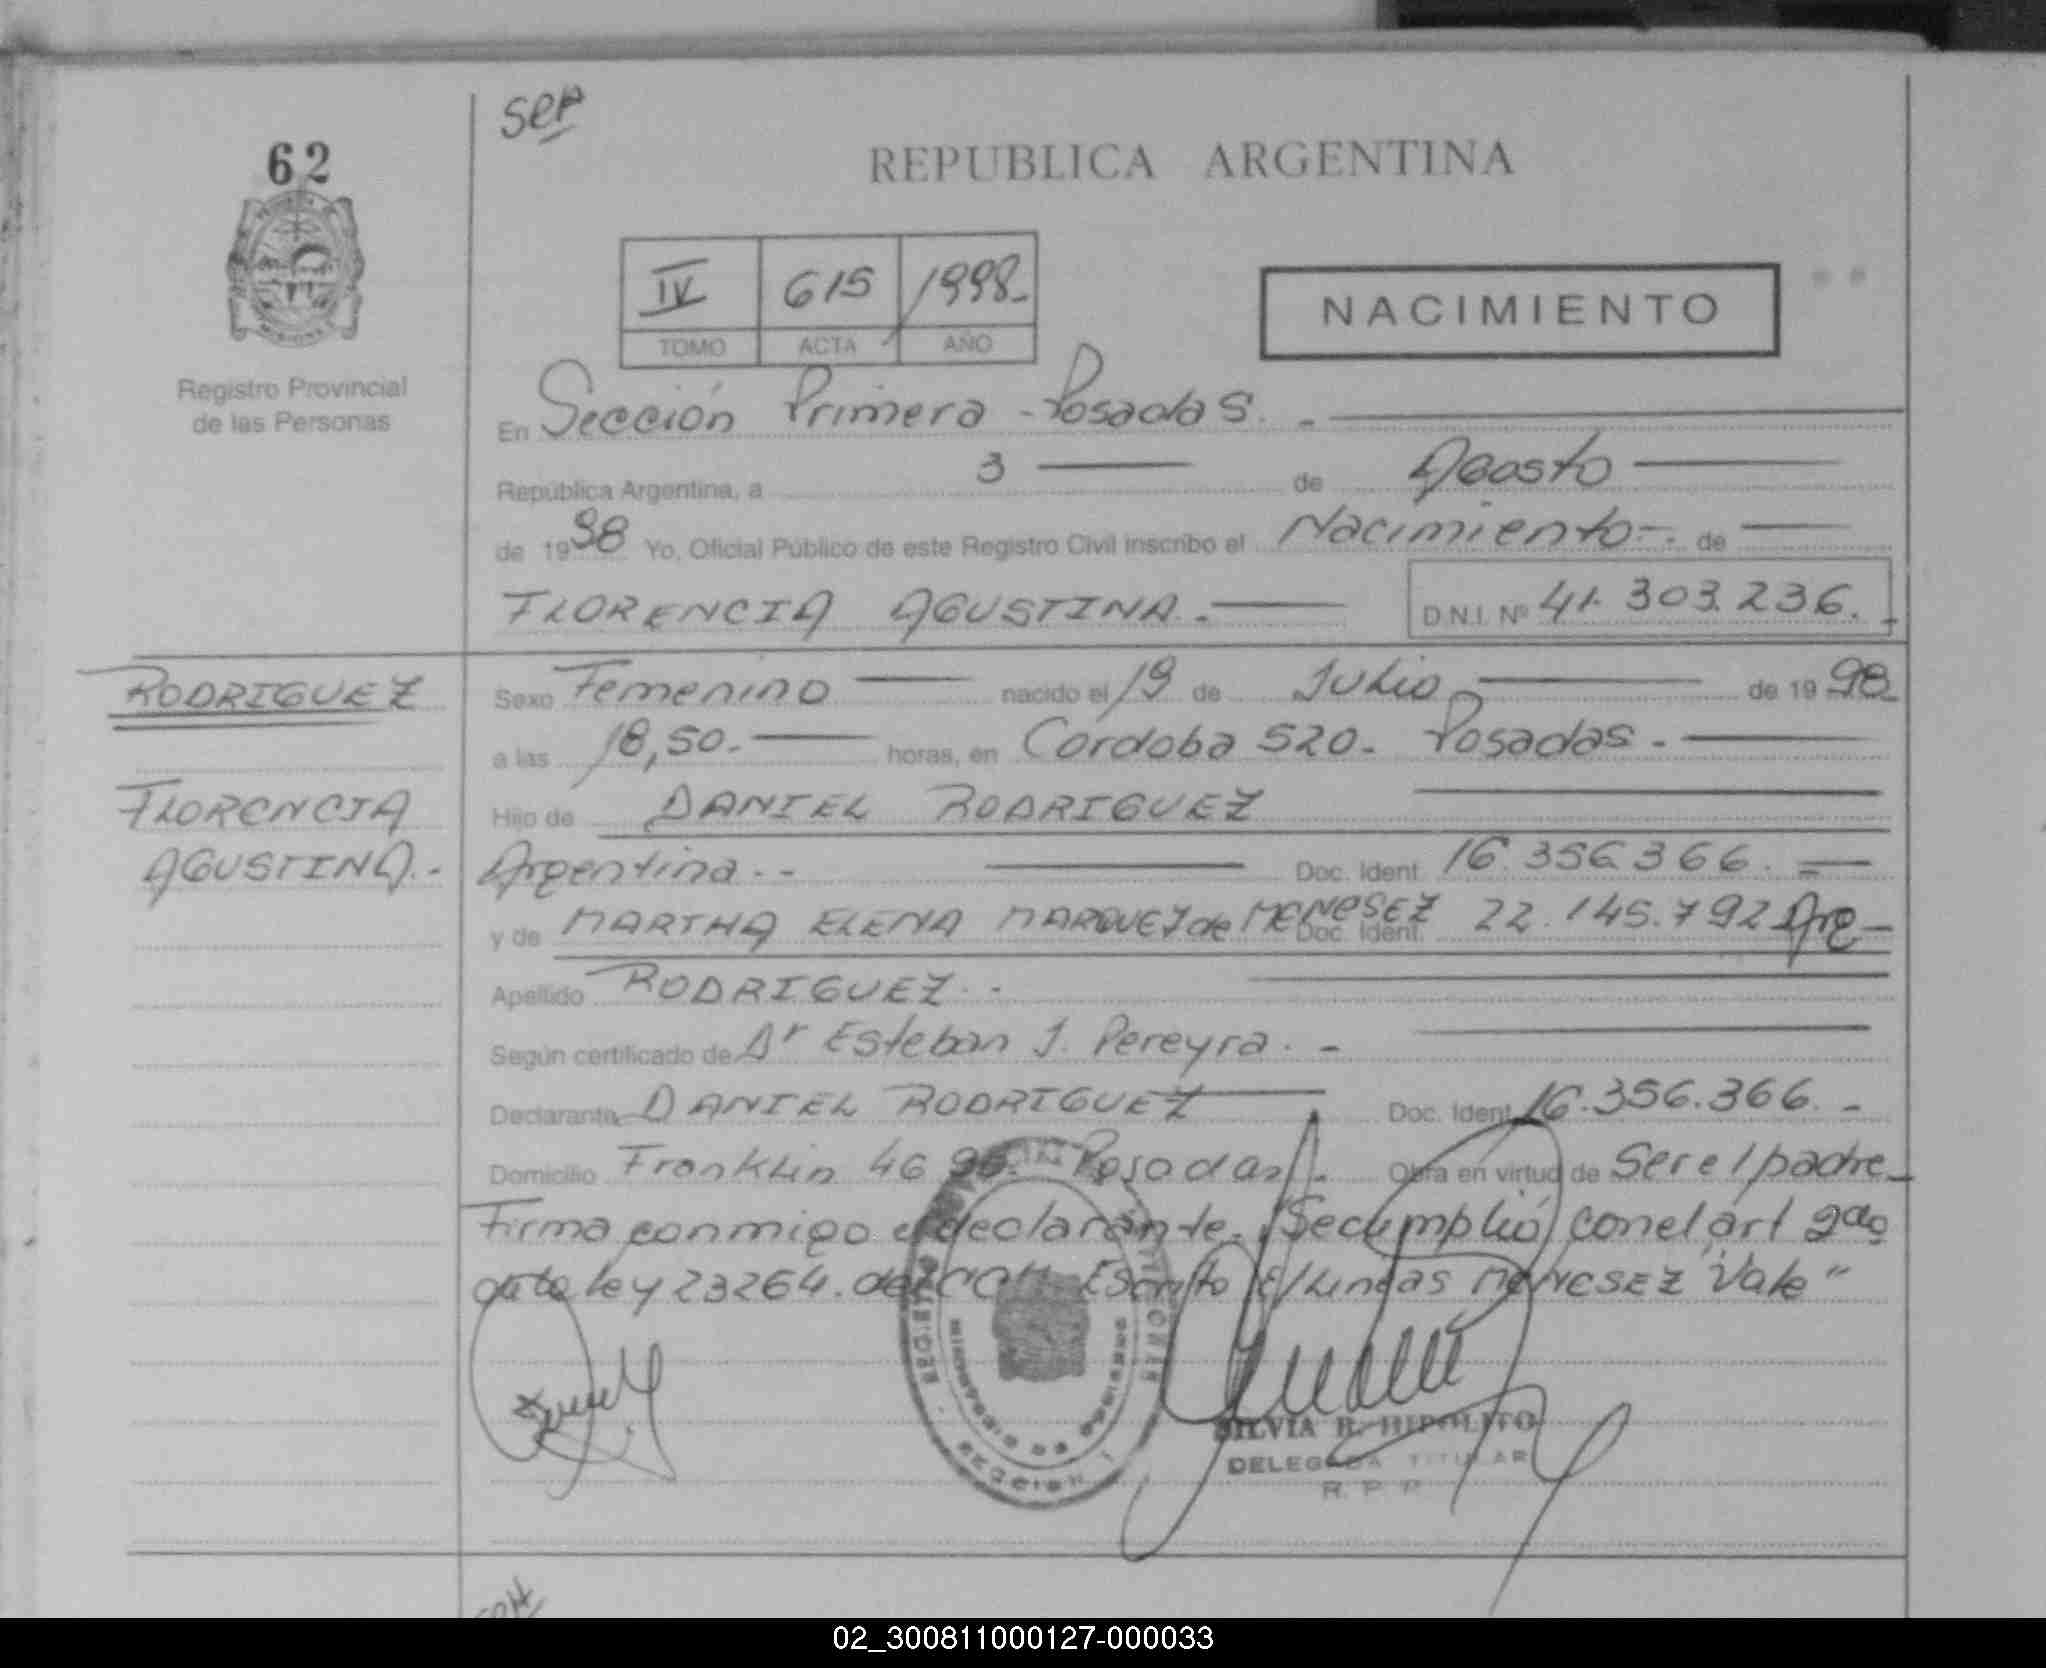 62
Ser
REPUBLICA ARGENTINA
IV 615 1998-
TOMO ACTA AÑO
NACIMIENTO
Registro Provincial
de las Personas
En Sección Primera - Posadas. -
República Argentina, a 3 de Agosto
de 1998 Yo, Oficial Público de este Registro Civil inscribo el Nacimiento-. de
FLORENCIA AGUSTINA.- D.N.I. Nº 41.303.236.-
RODRIGUEZ
Sexo Femenino nacido el 19 de Julio de 1998-
a las 18,50.- horas, en Cordoba 520- Posadas.-
FLORENCIA
AGUSTINA.-
Hijo de DANIEL RODRIGUEZ
Argentina.-- Doc. Ident. 16.356.366.
y de MARTHA ELENA MARQUEZ de MENESEZ Doc. Ident. 22.145.792 Arg-
Apellido RODRIGUEZ.-
Según certificado de Dr Esteban J. Pereyra.-
Declarante DANIEL RODRIGUEZ Doc. Ident. 16.356.366.-
Domicilio Franklin 46 Posadas.- Obra en virtud de Ser el padre-
Firma conmigo el declarante. Se cumplió con el art 2do
de la ley 23264. del Escrito E/Lineas MENESEZ "Vale"
SECCION 1
SILVIA R. HIPOLITO
DELEGADA TITULAR
R. P. P.
02_300811000127-000033